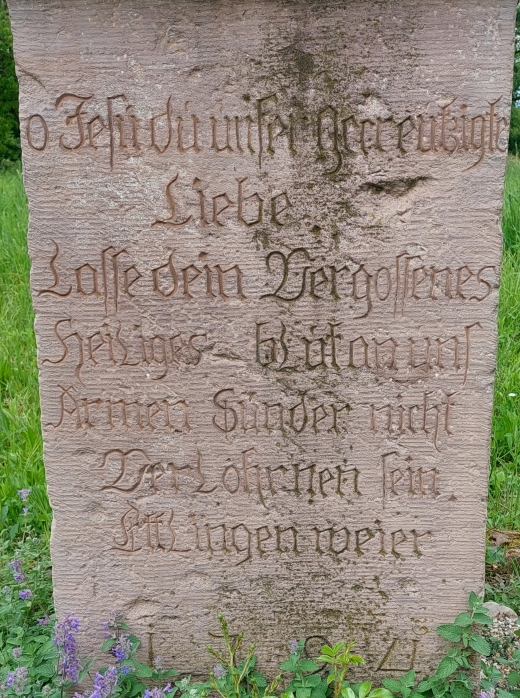 o Jesu du unser gecreutzigte
Liebe.
Lasse dein Vergossenes
Heiliges blut an uns
Armen Sünder nicht
Verlohrnen sein.
Ettlingenweier